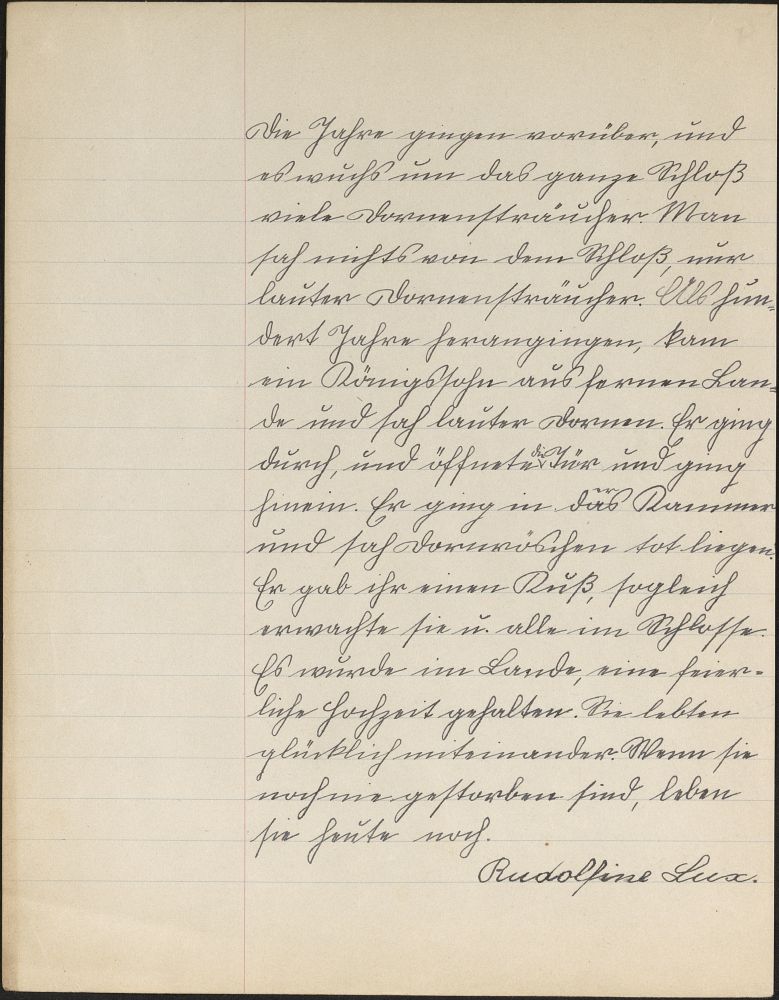 Die Jahre gingen vorüber, und
es wuchs um das ganze Schloß
viele Dornensträucher. Man
sah nichts von dem Schloß, nur
lauter Dornensträucher. Als hun=
dert Jahre herangingen, kam
ein Königssohn aus fernen Lan=
de und sah lauter Dornen. Er ging
durch, und öffnete die Tür und ging
hinein. Er ging in der Kammer
und sah Dornröschen tot liegen.
Er gab ihr einen Kuß, sogleich
erwachte sie u. alle im Schlosse.
Es wurde im Lande, eine feier-
liche Hochzeit gehalten. Sie lebten
glücklich miteinander. Wenn sie
noch nie gestorben sind, leben
sie heute noch.
Rudolfine Lux.